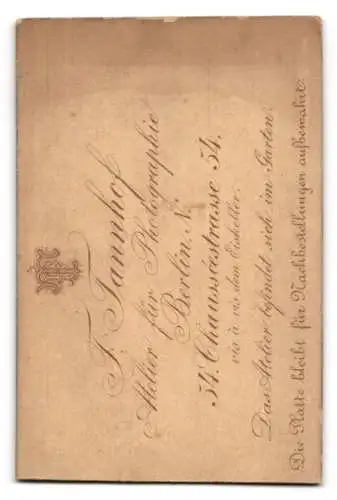 F. Tannhof
Atelier für Photographie
Berlin, N.
54. Chausséestrasse 54.
vis à vis dem Eiskeller.
Das Atelier befindet sich im Garten.
Die Platte bleibt für Nachbestellungen aufbewahrt.